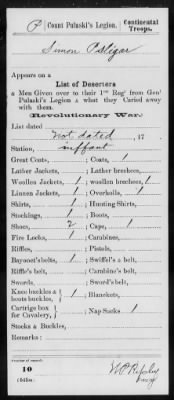 P | Count Pulaski's Legion. | Continental Troops.
Simon
Appears on a
List of Deserters
& Men Given over to their 1st Regt from Genl
Pulaski's Legion & what they Caried away
with them.
Revolutionary War.
List dated
not dated, 17
Station,
Great Coats, 1 ; Coats, 1
Lather Jackets, ; Lather breeches,
Woollen Jackets, 1 ; woollen breeches, 1
Linnen Jackets, ; Overhalls, 1
Shirts, 1 ; Hunting Shirts,
Stockings, 1 ; Boots,
Shoes, 2 ; Caps, 1
Fire Locks, 1 ; Carabines,
Riffles, ; Pistols,
Bayonet's belts, 1 ; Swiffel's belt,
Riffle's belt, ; Carabine's belt,
Swords, ; Sword's belt,
Knee buckles & boots buckles, 1 ; Blanckets,
Cartrige box for Cavalery, 1 ; Nap Sacks 1
Stocks & Buckles,
Remarks:
Number of record:
10
(626m)
Copyist.